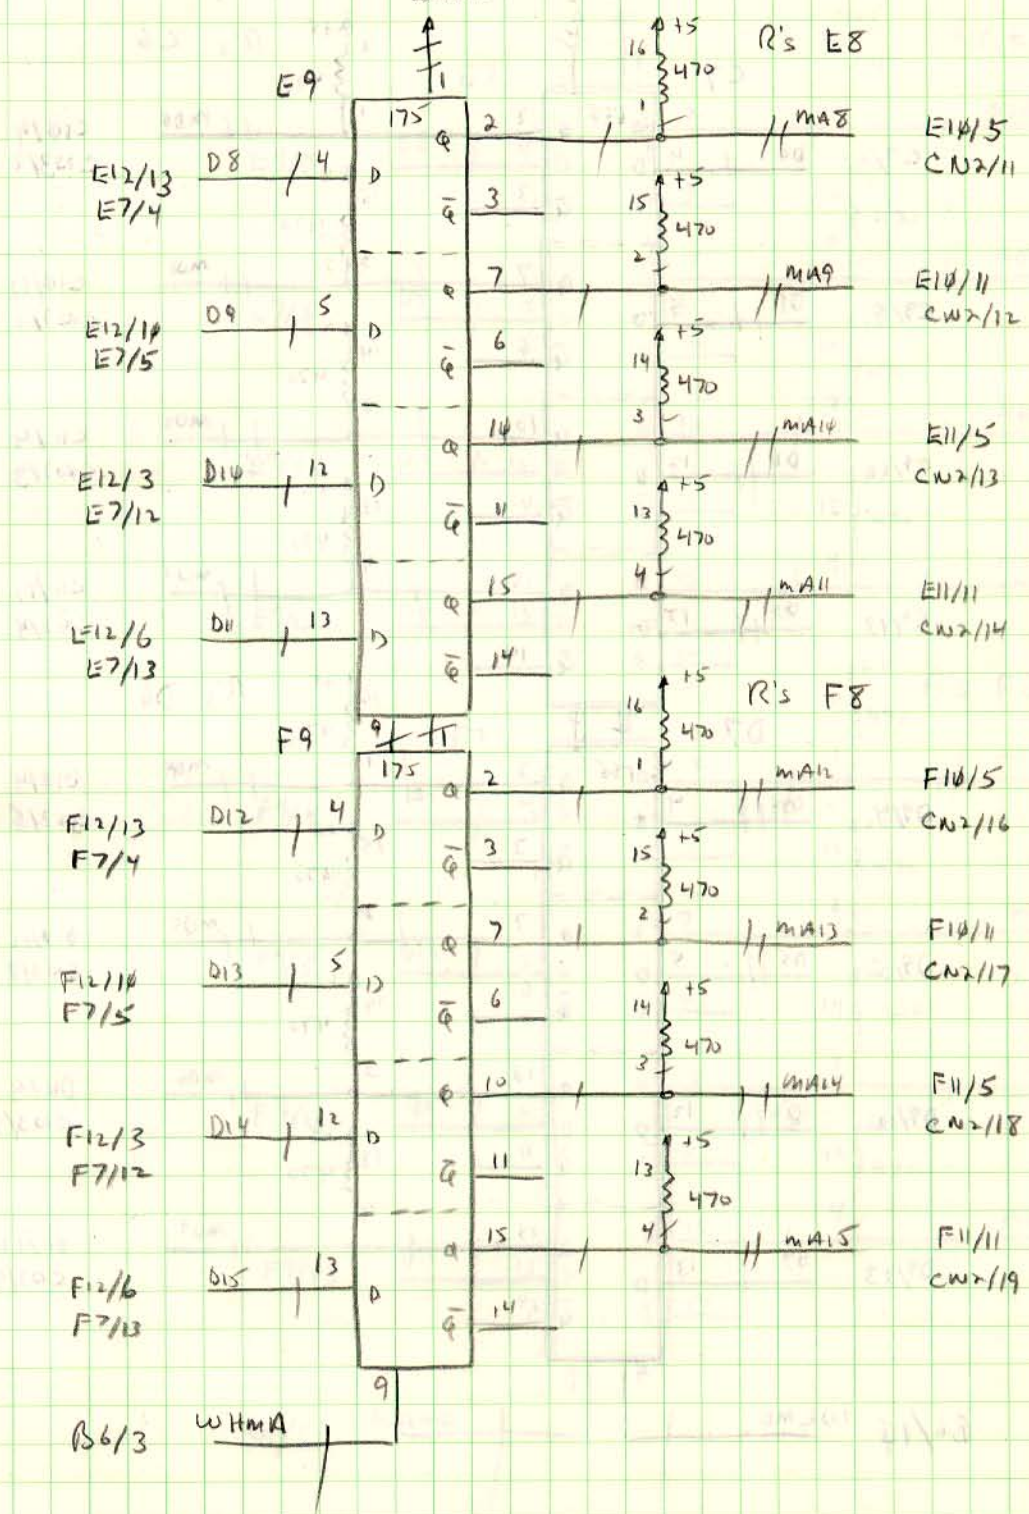 +5
R's E8
16
470
1
E9
1
175
Q
2
MA8
E10/5
CN2/11
E12/13
E7/4
D8
4
D
Q̅
3
+5
15
470
2
Q
7
MA9
E10/11
CN2/12
E12/10
E7/5
D9
5
D
Q̅
6
+5
14
470
3
Q
10
MA10
E11/5
CN2/13
E12/3
E7/12
D10
12
D
Q̅
11
+5
13
470
4
Q
15
MA11
E11/11
CN2/14
E12/6
E7/13
D11
13
D
Q̅
14
+5
R's F8
16
470
1
F9
9
1
175
Q
2
MA12
F10/5
CN2/16
F12/13
F7/4
D12
4
D
Q̅
3
+5
15
470
2
Q
7
MA13
F10/11
CN2/17
F12/10
F7/5
D13
5
D
Q̅
6
+5
14
470
3
Q
10
MA14
F11/5
CN2/18
F12/3
F7/12
D14
12
D
Q̅
11
+5
13
470
4
Q
15
MA15
F11/11
CN2/19
F12/6
F7/13
D15
13
D
Q̅
14
9
B6/3
WHMA